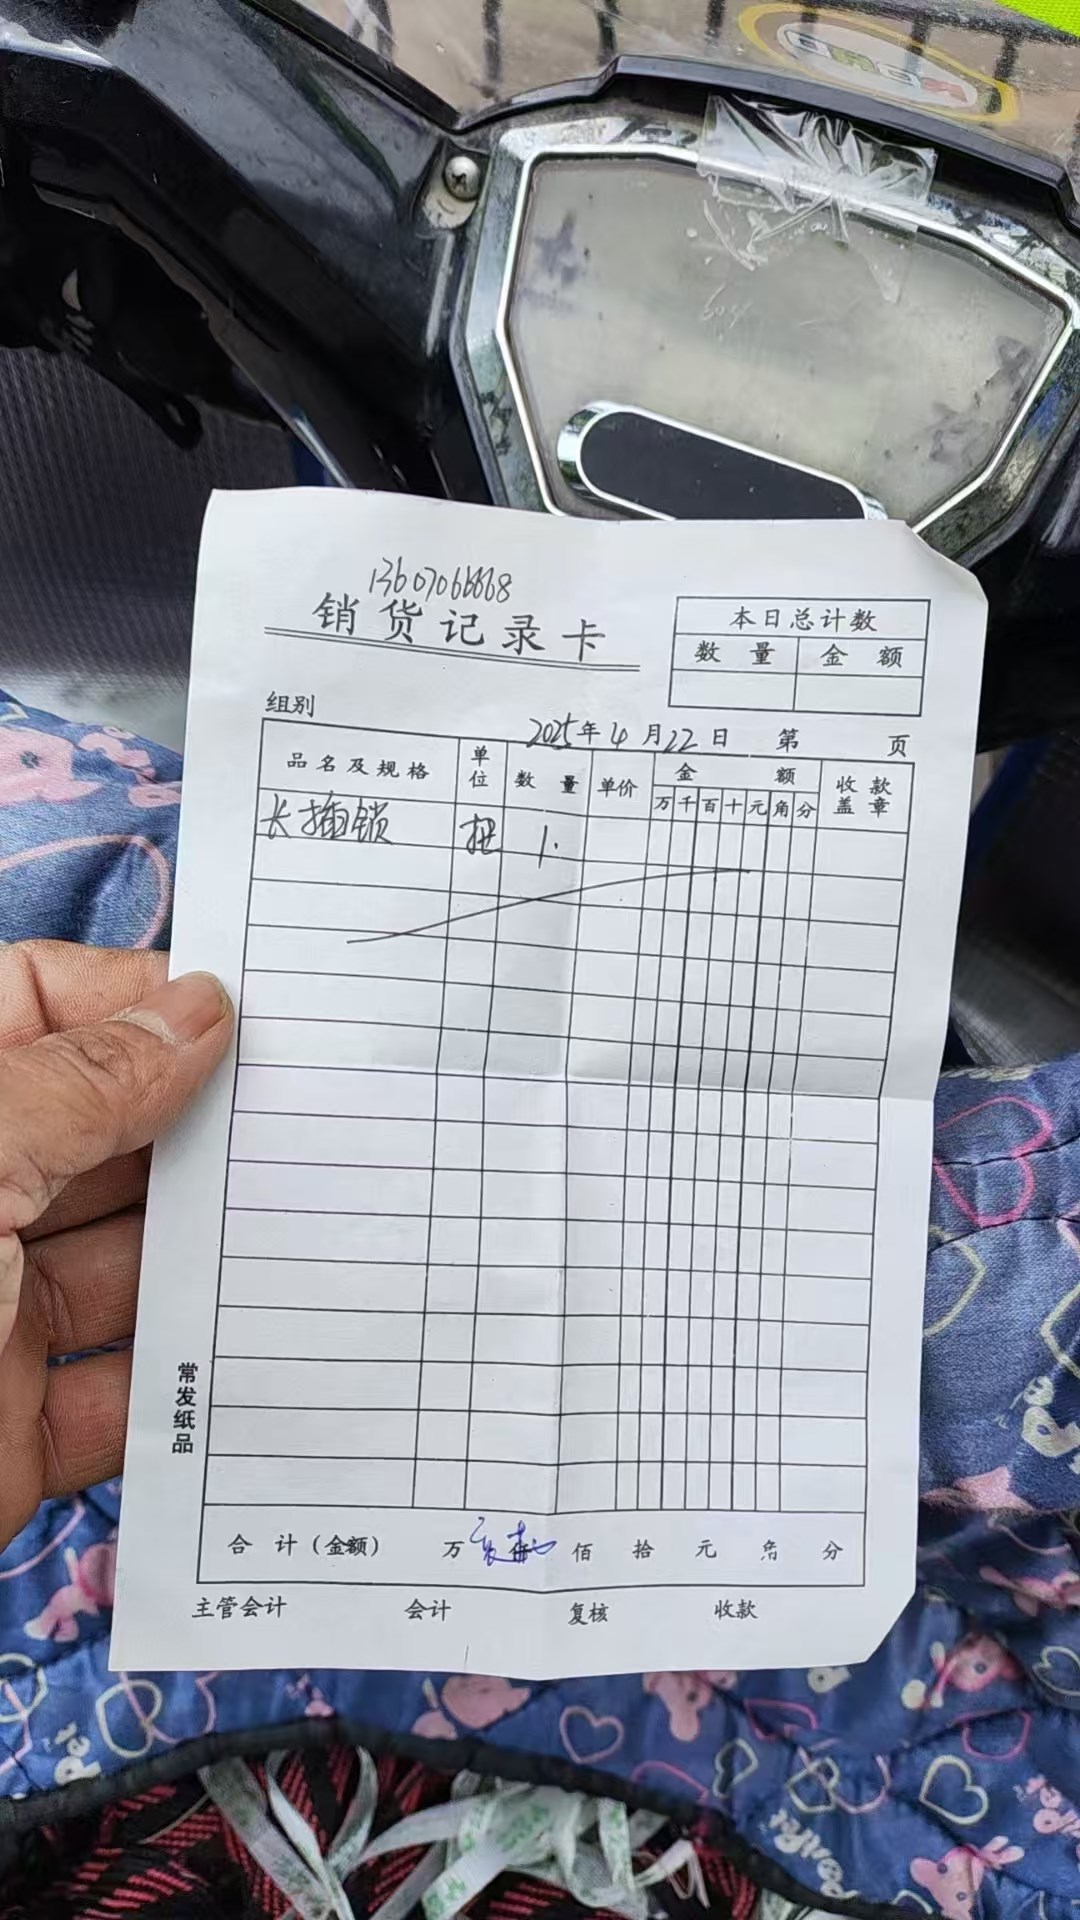 13607066868
销货记录卡
本日总计数
数量 金额
组别
2025年4月22日 第 页
品名及规格 单位 数量 单价 金额 收款盖章
万千百十元角分
长插锁 把 1.
常发纸品
合计(金额) 万 仟 佰 拾 元 角 分
主管会计 会计 复核 收款